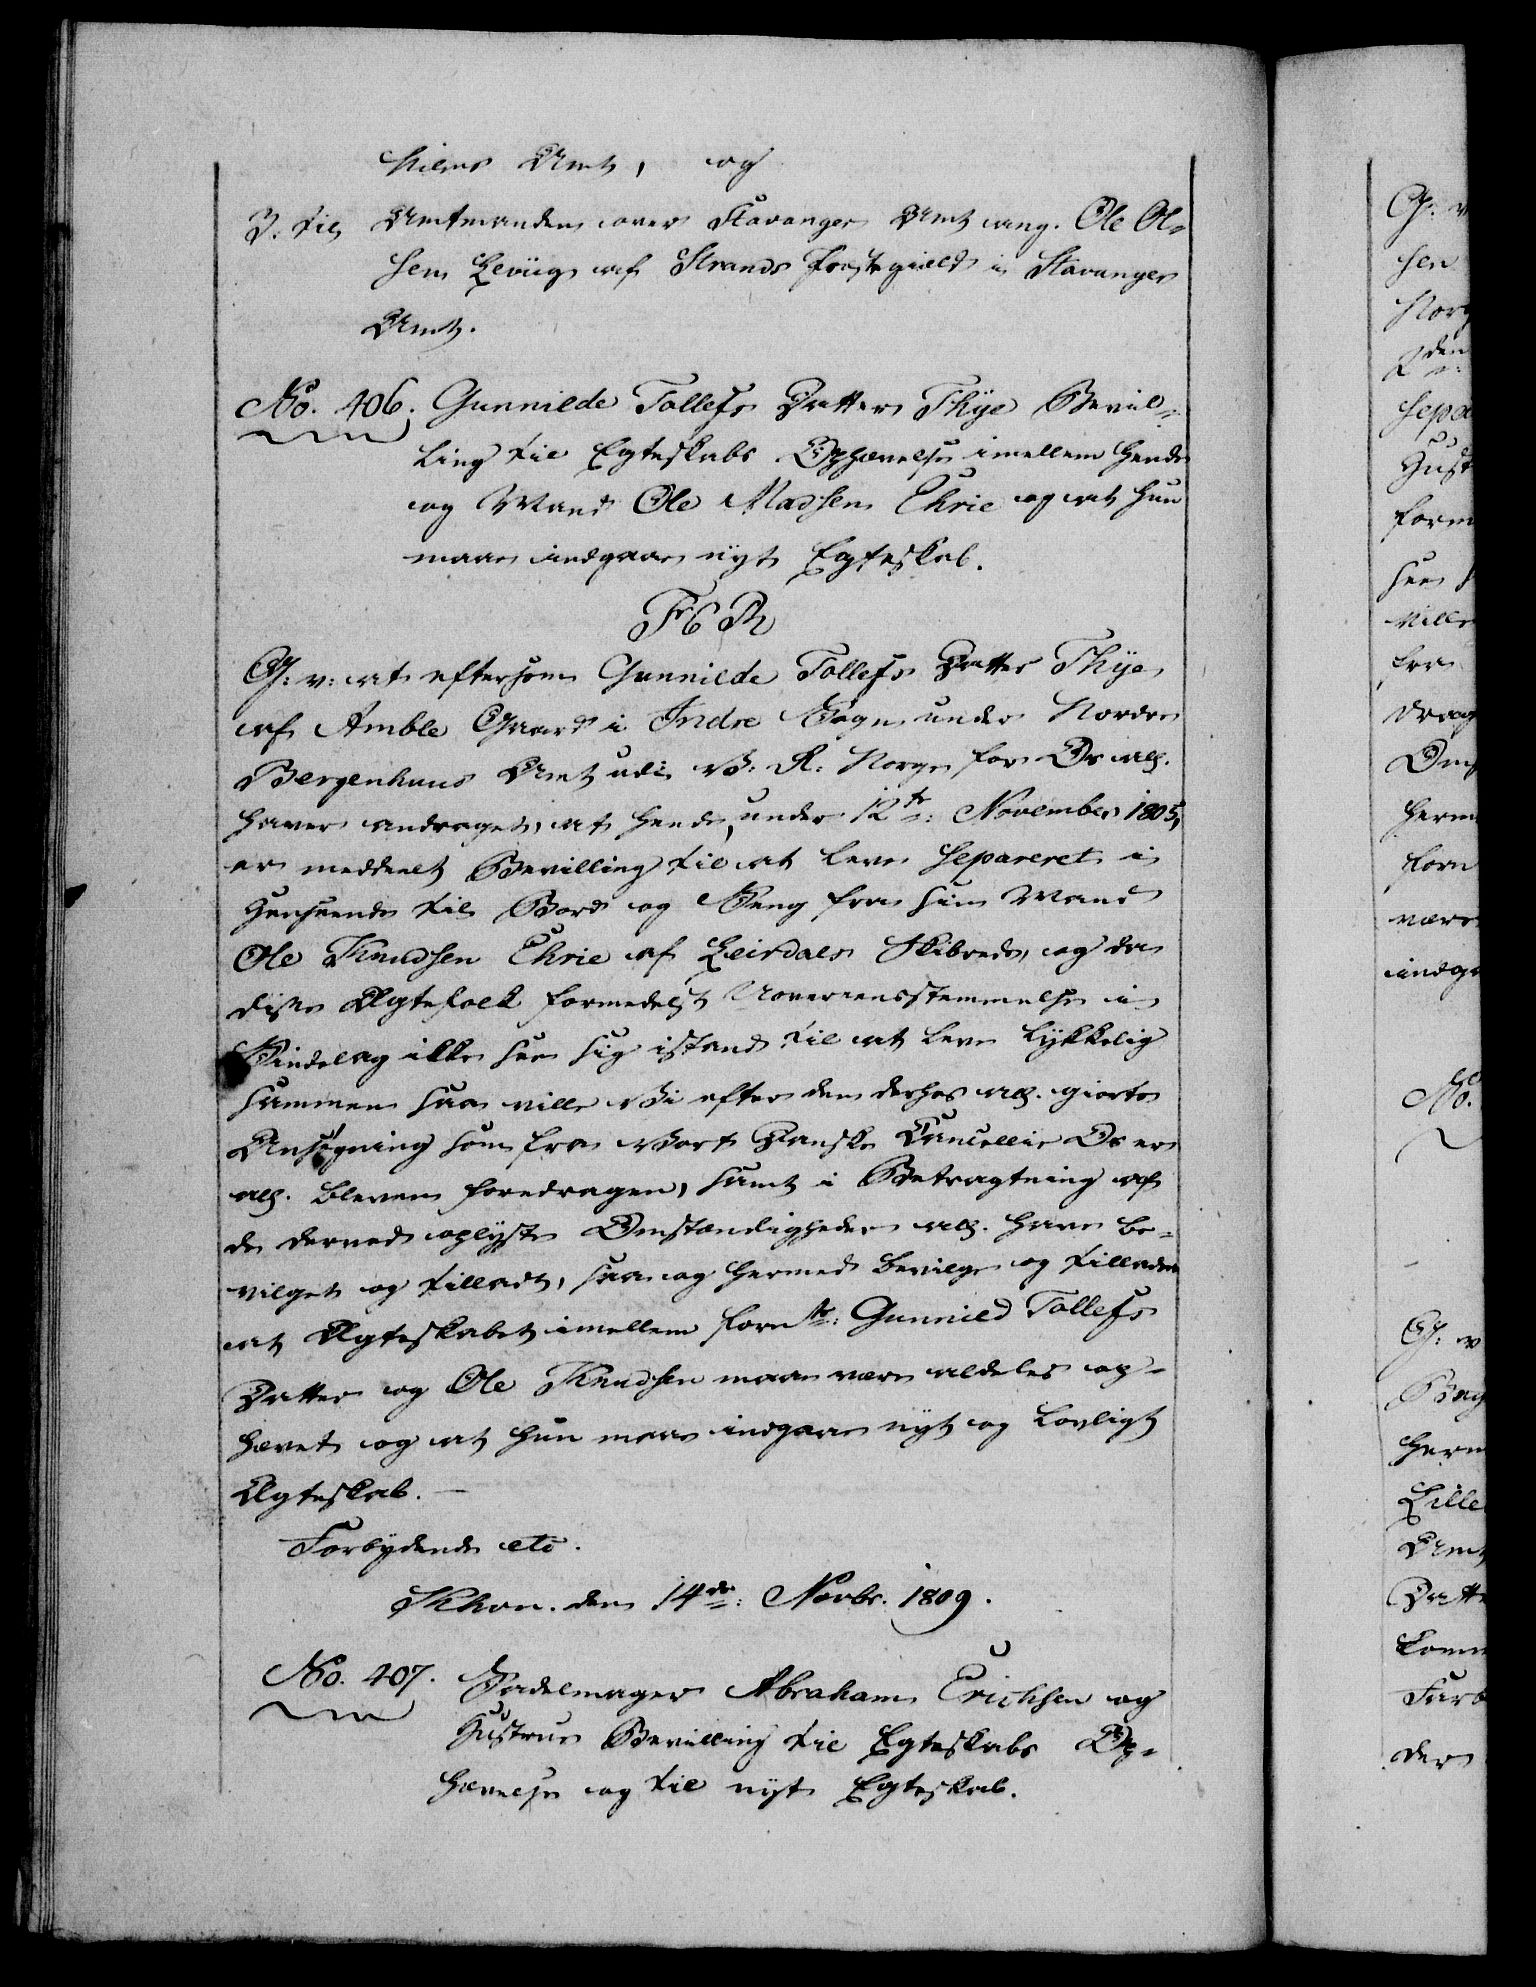 hiems Amt, og
3. til Amtmanden over Stavanger Amt ang. Ole Ol-
sen Leviig af Strands Præstegield i Stavanger
Amt.
No. 406. Gunnilde Tollefs Datter Thye Bevil-
ling til Egteskabs Ophævelse imellem hende
og Mand Ole Madsen Ehrie og at hun
maae indgaae nyt Egteskab.
F6 R
G: v: at eftersom Gunnilde Tollefs Datter Thye
af Amble Gaard i Indre Sogn under Nordre
Bergenhuus Amt udi V: R: Norge for Os all.
haver andraget, at hende, under 12te: November 1805,
er meddeelt Bevilling til at leve separeret i
Henseende til Bord og Seng fra sin Mand
Ole Knudsen Ehrie af Leirdals Skibrede, og da
disse Ægtefolk formedelst Uovereensstemmelse i
Sindelag ikke see sig istand til at leve lykkelig
sammen saa ville Vi efter den derhos all. giorte
Ansøgning som fra Vort Danske Cancellie Os er
all. bleven foredragen, samt i Betragtning af
de derved oplyste Omstændigheder all. have be-
vilget og tilladt, saa og hermed bevilge og tillade
at Ægteskabet imellem fornte: Gunnild Tollefs
Datter og Ole Knudsen maae være aldeles op-
hævet og at hun maae indgaae nyt og lovligt
Ægteskab. —
Forbydende etc.
Khavn. den 14de: Novbr. 1809.
No. 407. Sadelmager Abraham Erichsen og
Hustrues Bevilling til Egteskabs Op-
hævelse og til nyt Egteskab.